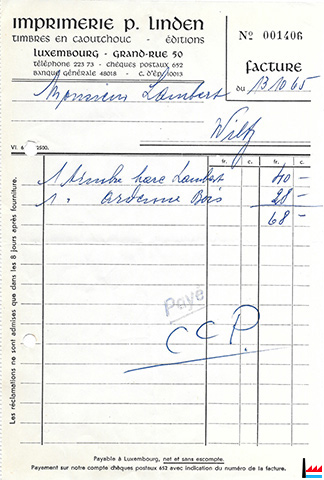 imprimerie p. linden
timbres en caoutchouc - éditions
luxembourg - grand-rue 50
téléphone 223 73 - chèques postaux 652
banque générale 48018 - c. d'ép. 10013
No 001406
facture
du 13 10 65
Monsieur Lambert
Wiltz
VI. 6 2500.
fr. c. fr. c.
1 Marc Lambert 40 -
1 " Bois 28 -
68 -
Payé
C C P.
Les réclamations ne sont admises que dans les 8 jours après fourniture.
Payable à Luxembourg, net et sans escompte.
Payement sur notre compte chèques postaux 652 avec indication du numéro de la facture.